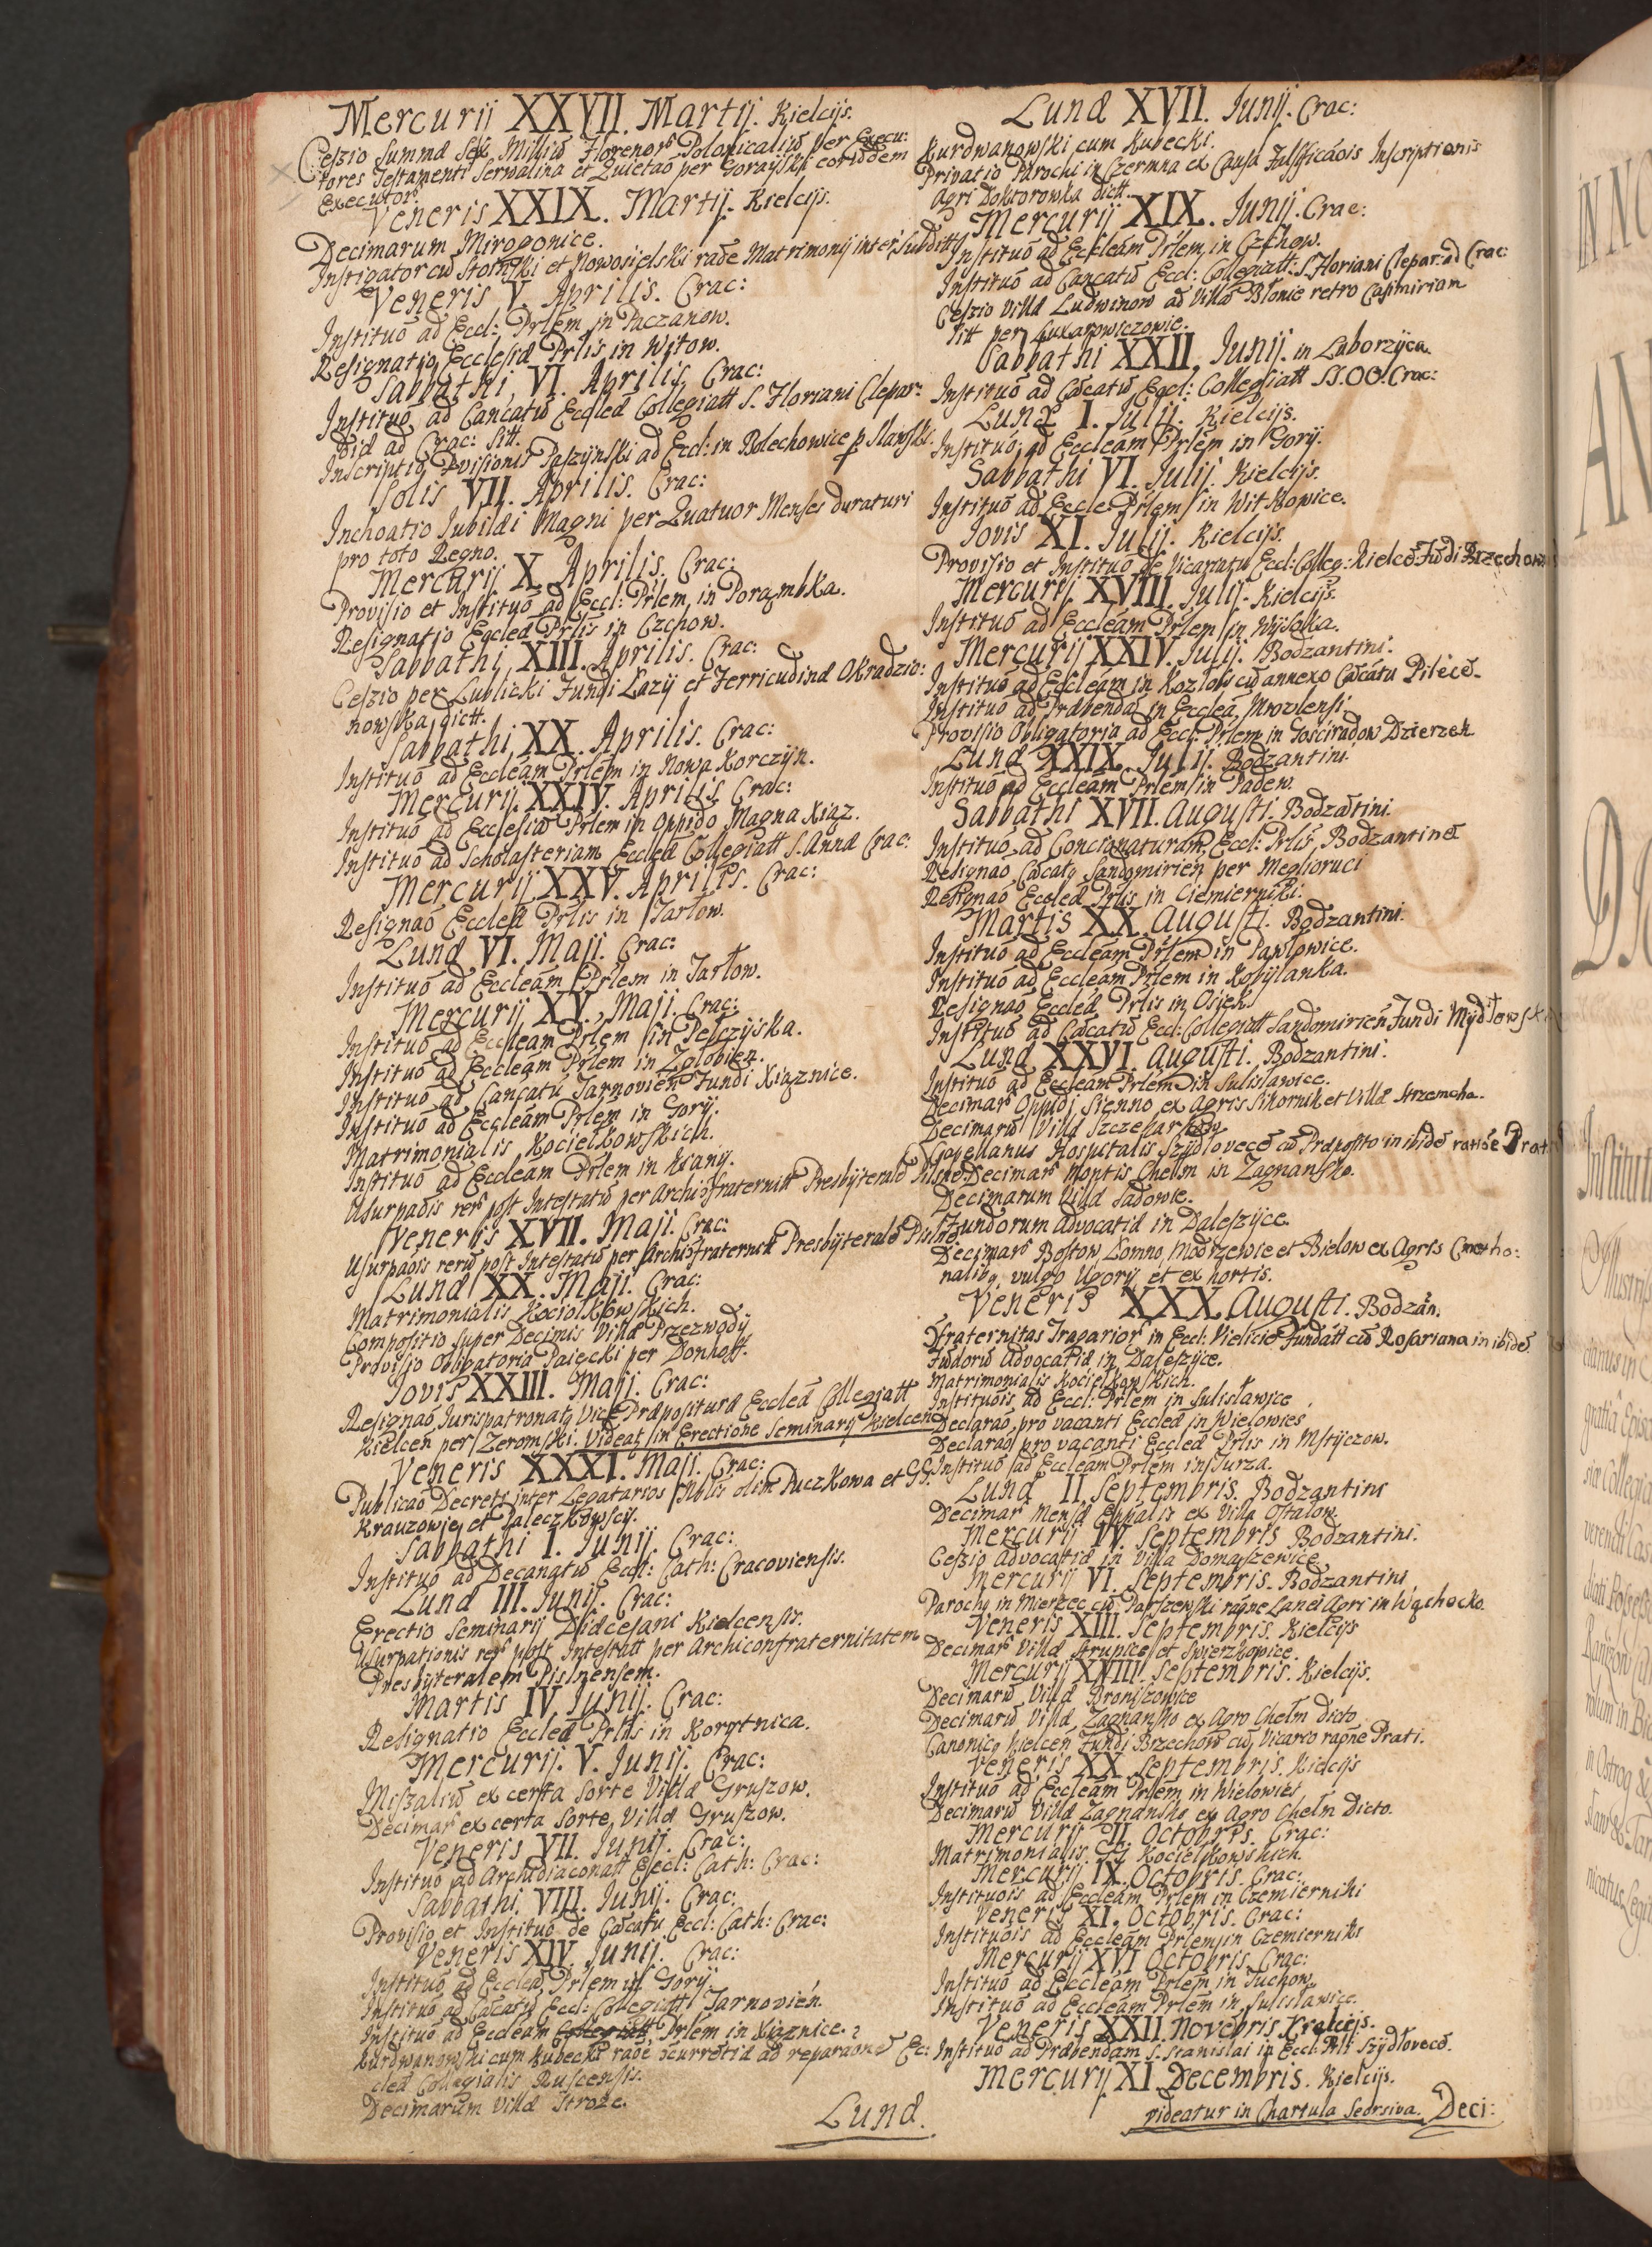 Mercurij XXVII. Martij. Kielcijs.
Ceszio Summæ Sex Milliū Florenorū Polonicaliū per Execu:
tores Testamenti Serwalina et Quietaō per Gorayski eorūdem
Executor.
Veneris XXIX. Martij. Kielcijs.
Decimarum Mirogonice.
Instigator cū Stoinski et Nowosielski raōe Matrimonij inter Subditt
Veneris V. Aprilis. Crac:
Instituō ad Eccl: Prlem in Paczanow.
Resignatio Ecclesiæ Prlis in Witow.
Sabbathi VI. Aprilis. Crac:
Instituō ad Cancatū Eccleæ Collegiatt S. Floriani Clepar:
diæ ad Crac: Sitt.
Inscriptio Pvisionis Paszynski ad Eccl: in Bolechowice p Slawski.
Solis VII. Aprilis. Crac:
Inchoatio Jubilæi Magni per Quatuor Menses duraturi
pro toto Regno.
Mercurij X. Aprilis. Crac:
Provisio et Instituō ad Eccl: Prlem in Porąmbka.
Resignatio Eccleæ Prlis in Czchow.
Sabbathi XIII. Aprilis. Crac:
Ceszio per Lublicki Fundi Łazij et Terricudinæ Okradzio:
nowska dictt.
Sabbathi XX. Aprilis. Crac:
Instituō ad Eccleam Prlem in Nowa Korczyn.
Mercurij XXIV. Aprilis Crac:
Instituō ad Ecclesiā Prlem in Oppido Magna Xiąz.
Instituō ad Scholasteriam Eccleæ Collegiatt S. Annæ Crac:
Mercurij XXV. Aprilis. Crac:
Resignaō Eccleæ Prlis in Tarłow.
Lunæ VI. Maji. Crac:
Instituō ad Eccleam Prlem in Tarłow.
Mercurij XV. Maji. Crac:
Instituō ad Eccleam Prlem in Pełczyska.
Instituō ad Eccleam Prlem in Zgłobien.
Instituō ad Cancatū Tarnovien Fundi Xiąznice.
Instituō ad Eccleam Prlem in Gorij.
Matrimonialis Kociełkowskich.
Instituō ad Eccleam Prlem in Ksany.
Usurpaōis rer post Intestatū per Archicfraternitt Presbyteralē Pilsnē.
Veneris XVII. Maji. Crac:
Usurpaōis rerū post Intestatū per Archicfraternitt Presbyteralē Pilsnē
Lunæ XX. Maji. Crac:
Matrimonialis Kociołkowskich.
Compositio super Decimis Villæ Przezwody
Provisio Obligatoria Paięcki per Donhoff.
Jovis XXIII. Maji. Crac:
Resignaō Jurispatronatg Vice Præpositura Eccleæ Collegiatt
Kielcen per Zeromski. Videat in Erectione Seminarij Kielcen
Veneris XXXI. Maji. Crac:
Publicaō Decreti inter Legatarios Nblis olim Puczkowa et GG.
Krauzowie et Paleczkowscij.
Sabbathi I. Junij. Crac:
Instituō ad Decanatū Eccl: Cath: Cracoviensis.
Lunæ III. Junij. Crac:
Erectio Seminarij Diæcesani Kielcensis.
Usurpationis rer post Intestatt per Archiconfraternitatem
Presbyteralem Pislnensem.
Martis IV Junij. Crac:
Resignatio Eccleæ Prlis in Korytnica.
Mercurij. V. Junij. Crac:
Miszaliū ex certa sorte Villæ Gruszow.
Decimar ex certa sorte Villæ Gruszow.
Veneris VII. Junij. Crac:
Instituō ad Archidiaconatt Eccl: Cath: Crac:
Sabbathi VIII. Junij. Crac:
Provisio et Instituō de Cācatu Eccl: Cath: Crac:
Veneris XIV. Junij. Crac:
Instituō ad Eccleā Prlem in Gorij.
Instituō ad Cācatū Eccl: Collegiatt Tarnovien.
Instituō ad Eccleam Collegiatt Prlem in Xiąznice.
Kurdwanowski cum Kubecki raōe ad reparaonē Ec:
cleæ Collegialis Ruscensis.
Decimarum Villæ Stroże.
Lunæ.
Lunæ XVII. Junij. Crac:
Kurdwanowski cum Kubecki.
Privatio Parochi in Czermna ex Causa Falsificāois Inscriptionis
Agri Doktorowka dictt.
Mercurij XIX. Junij. Crac:
Instituō ad Eccleam Prlem in Czchow.
Instituō ad Cancatū Eccl: Collegiatt: S. Floriani Clepar: ad Crac:
Ceszio Villæ Ludwinow ad Villā Błonie retro Casimiriam
Sitt per Luxarowiczowie.
Sabbathi XXII. Junij. in Laborzyca.
Instituō ad Cācatū Eccl: Collegiatt SS.OO. Crac:
Lunæ I. Julij. Kielcijs.
Instituō ad Eccleam Prlem in Gorij.
Sabbathi VI. Julij. Kielcijs.
Instituō ad Eccle Prlem in Witkowice.
Jovis XI. Julij. Kielcijs.
Provisio et Instituō de Vicariatu Eccl: Colleg: Kielcē Fūdi Brzechow
Mercurij XVIII. Julij. Kielcijs.
Instituō ad Eccleam Prlem in Wysoka.
Mercurij XXIV. Julij. Bodzantini.
Instituō ad Eccleam in Kozłow cū annexo Cācatu Pilecē.
Instituō ad Præbendā in Ecclea Mrovlensi.
Provisio Obligatoria ad Eccl: Prlem in Gościradow Dzierzek
Lunæ XXIX. Julij. Bodzantini.
Instituō ad Eccleam Prlem in Padew.
Sabbathi XVII. Augusti. Bodzātini.
Instituō ad Concionaturam Eccl: Prlis Bodzantinē
Resignaō Cācatg Sandomirien per Meglioruci
Resignaō Eccleæ Prlis in Ciemierniki.
Martis XX. Augusti. Bodzantini.
Instituō ad Eccleam Prlem in Pawłowice.
Instituō ad Eccleam Prlem in Kobylanka.
Resignaō Eccleæ Prlis in Osiek
Instituō ad Cācatū Eccl: Collegiatt Sandomirien Fundi Mydłow
Lunæ XXVI. Augusti. Bodzantini.
Instituō ad Eccleam Prlem in Sulisławice.
Decimar Oppidi Sienno ex Agris Sikornik et Villæ Strzemcha.
Decimarū Villæ Szczecarkow
Capellanus Hospitalis Szydłovecē cū Præposito in ibidē ratiōe Prati
Decimar Montis Chełm in Zagnansko.
Decimarum Villæ Sadowie.
Fundorum Advocatiæ in Daleszyce.
Decimar Bostow Łomno Modrzewie et Bielow ex Agris Cmetho:
nalibg vulgo Ugory et ex hortis.
Veneris XXX Augusti. Bodzan.
Cfraternitas Traparior in Eccl: Vielicie Fundatt cū Rosariana in ibidē
Fūdorū Advocatiæ in Daleszyce.
Matrimonialis Kociełkowskich.
Instituōis ad Eccl: Prlem in Sulisławice
Declaraō pro vacanti Eccleæ in Wielowies
Declaraō pro vacanti Eccleæ Prlis in Mstyczow.
Instituō ad Eccleam Prlem in Turza.
Lunæ II Septembris. Bodzantini
Decimar Mensæ Eppalis ex Villa Ostałow.
Mercurij IV. Septembris Bodzantini.
Ceszio Advocatiæ in Villa Domaszewice
Mercurij VI. Septembris. Bodzantini
Parochg in Mierzec cū Parszewski raōne Lanei Agri in Wąchocko.
Veneris XIII. Septembris. Kielcijs
Decimar Villæ Strupice et Swierzkowice.
Mercurij XVIII. Septembris. Kielcijs.
Decimarū Villæ Broniszowice
Decimarū Villæ Zagnansko ex Agro Chełm dicto
Canonicg Kielcen Fundi Brzechow cū Vicario raōne Prati.
Veneris XX Septembris. Kielcijs
Instituō ad Eccleam Prlem in Wielowies
Decimarū Villæ Zagnansko ex Agro Chełm dicto.
Mercurij II. Octobris. Crac:
Matrimonialis GG Kociełkowskich.
Mercurij IX. Octobris. Crac:
Instituōis ad Eccleam Prlem in Czemierniki
Veneris XI. Octobris. Crac:
Instituōis ad Eccleam Prlem in Czemierniki
Mercurij XVI Octobris. Crac:
Instituō ad Eccleam Prlem in Tuchow
Instituō ad Eccleam Prlem in Sulisławice.
Veneris XXII. Novēbris. Kielcijs.
Instituō ad Præbendam S. Stanislai in Eccl: Prli Szydłovecē.
Mercurij XI. Decembris. Kielcijs.
videatur in Chartula Seorsiva. Deci: